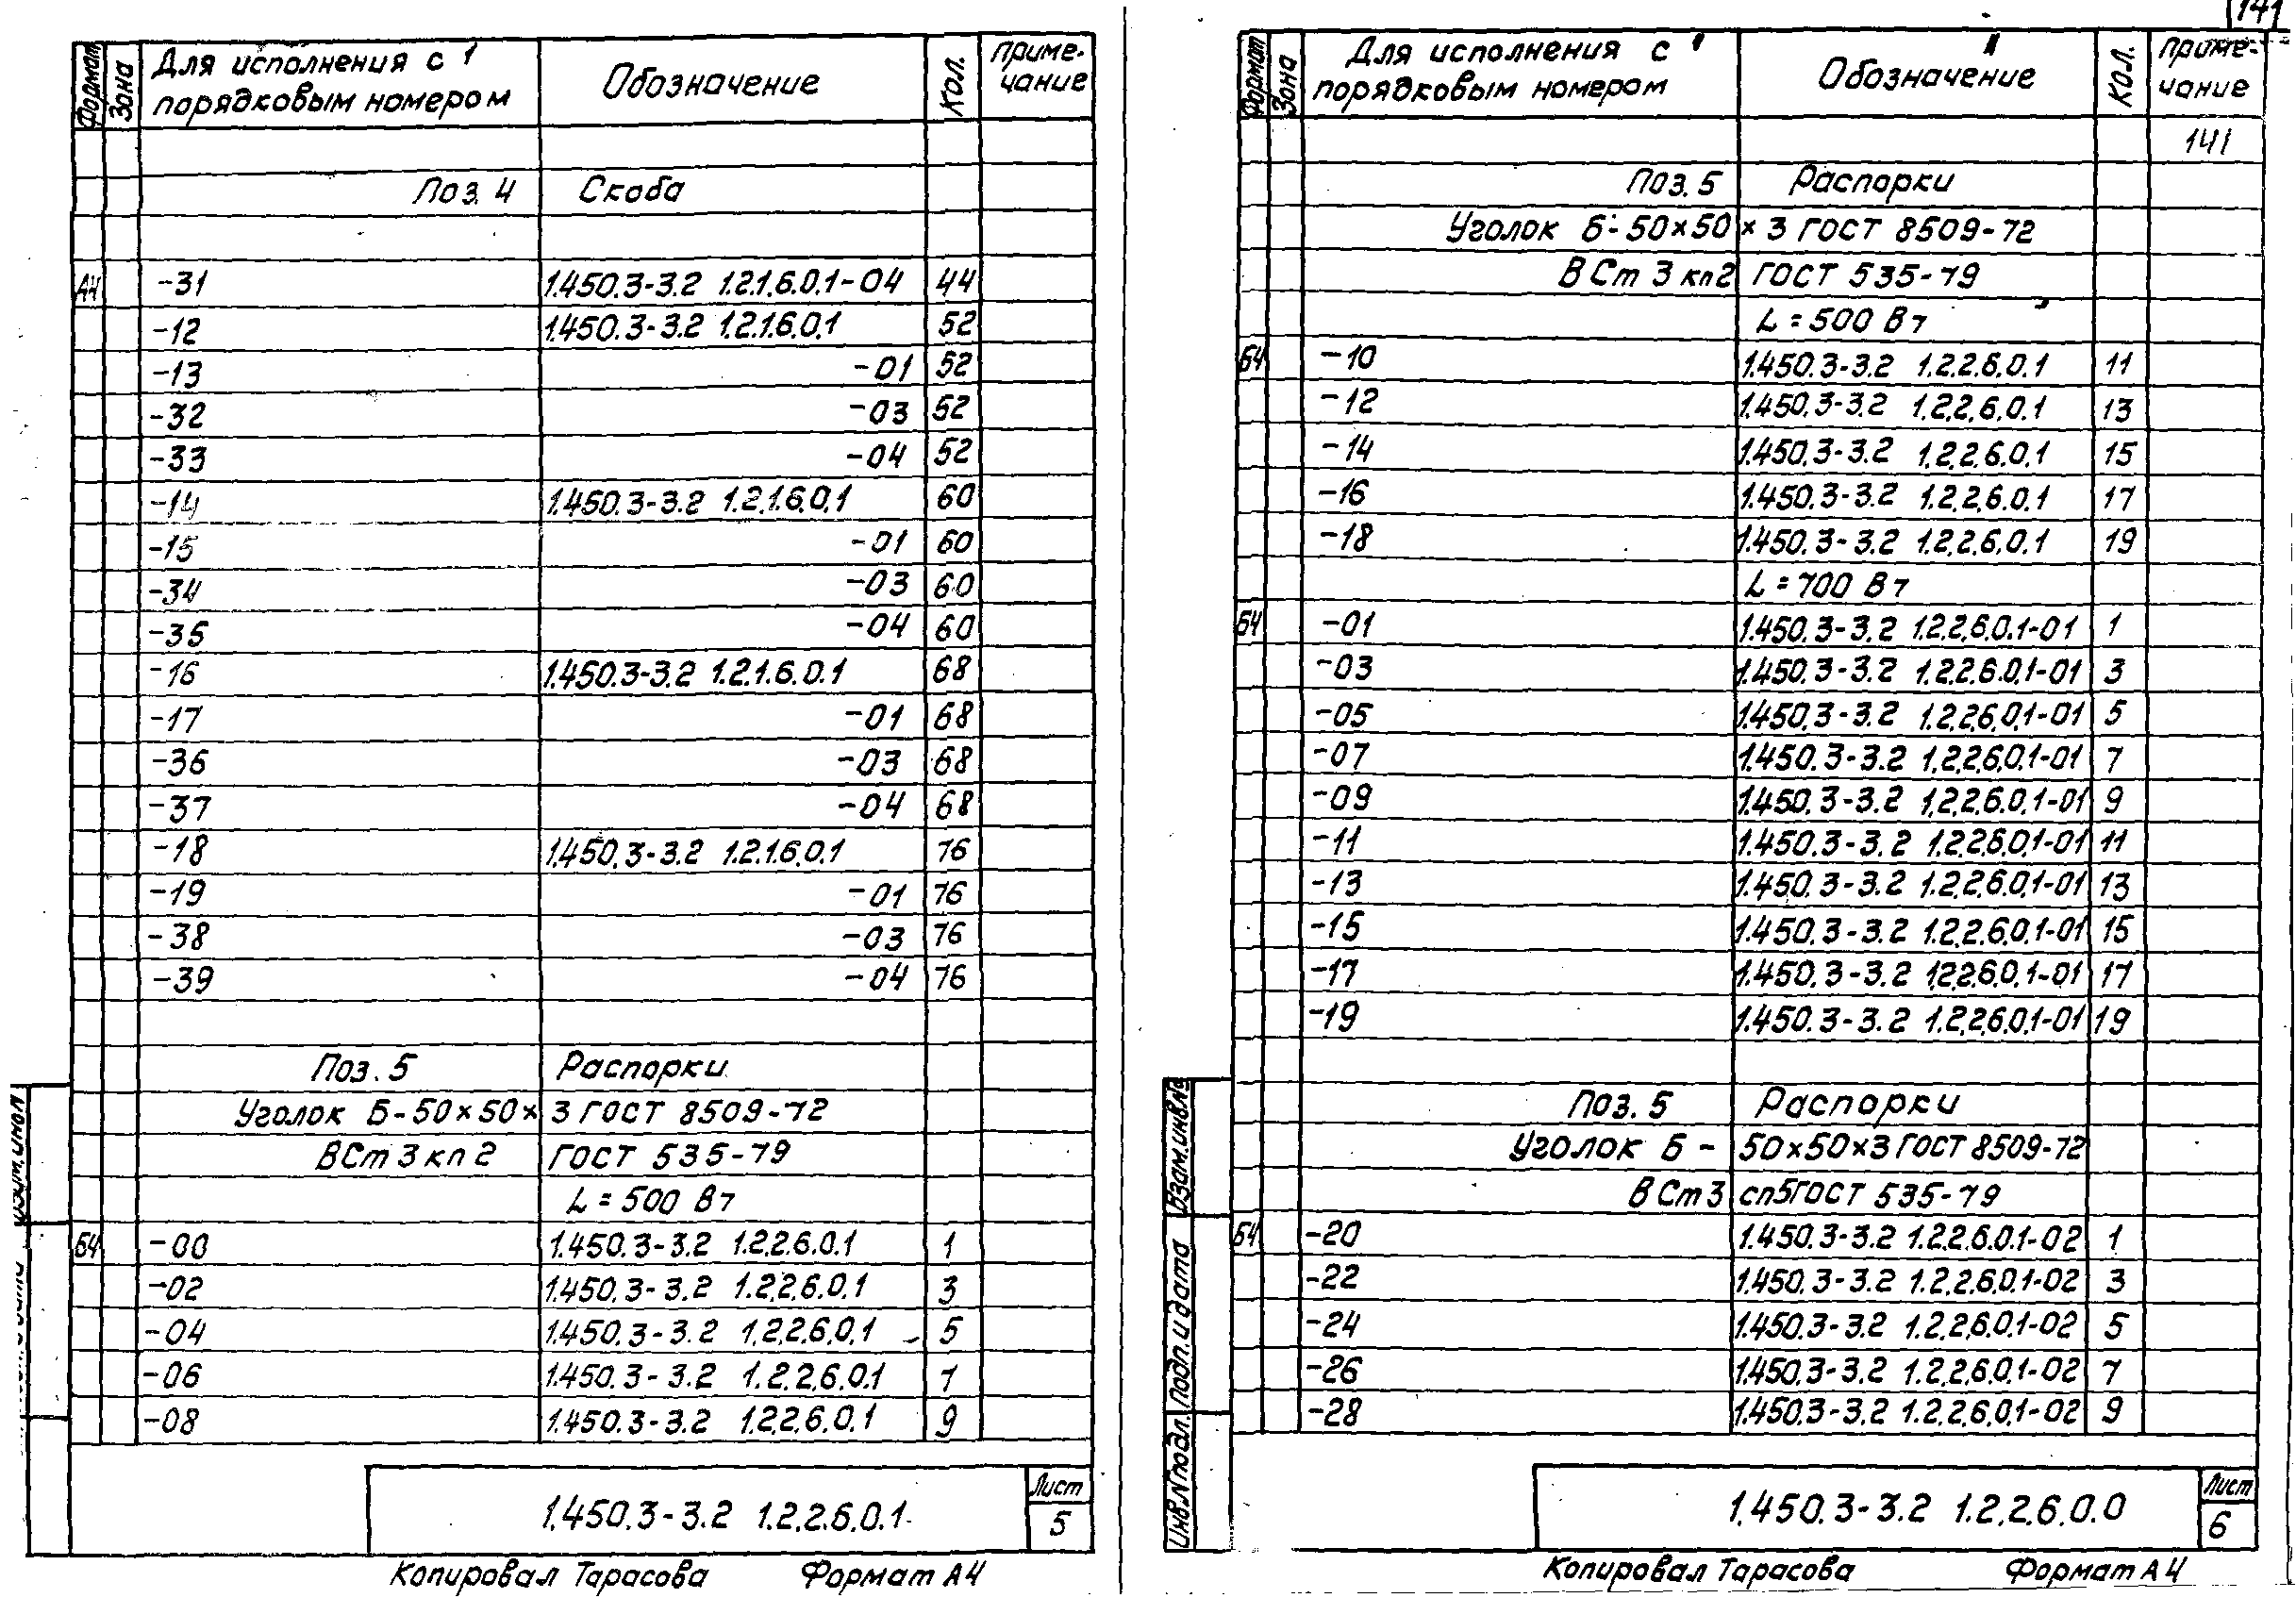 141
Формат Зона Для исполнения с 1 порядковым номером Обозначение Кол. Приме-чание
Поз. 4 Скоба
А4 -31 1.450.3-3.2 1.2.1.6.0.1-04 44
-12 1.450.3-3.2 1.2.1.6.0.1 52
-13 -01 52
-32 -03 52
-33 -04 52
-14 1.450.3-3.2 1.2.1.6.0.1 60
-15 -01 60
-34 -03 60
-35 -04 60
-16 1.450.3-3.2 1.2.1.6.0.1 68
-17 -01 68
-36 -03 68
-37 -04 68
-18 1.450.3-3.2 1.2.1.6.0.1 76
-19 -01 76
-38 -03 76
-39 -04 76
Поз. 5 Распорки
Уголок Б-50×50×3 ГОСТ 8509-72
ВСт3кп2 ГОСТ 535-79
L=500 Вт
Б4 -00 1.450.3-3.2 1.2.2.6.0.1 1
-02 1.450.3-3.2 1.2.2.6.0.1 3
-04 1.450.3-3.2 1.2.2.6.0.1 5
-06 1.450.3-3.2 1.2.2.6.0.1 7
-08 1.450.3-3.2 1.2.2.6.0.1 9
1.450.3-3.2 1.2.2.6.0.1
Лист
5
Копировал Тарасова Формат А4
Формат Зона Для исполнения с порядковым номером Обозначение Кол. Приме-чание
141
Поз. 5 Распорки
Уголок Б-50×50×3 ГОСТ 8509-72
ВСт3кп2 ГОСТ 535-79
L=500 Вт
Б4 -10 1.450.3-3.2 1.2.2.6.0.1 11
-12 1.450.3-3.2 1.2.2.6.0.1 13
-14 1.450.3-3.2 1.2.2.6.0.1 15
-16 1.450.3-3.2 1.2.2.6.0.1 17
-18 1.450.3-3.2 1.2.2.6.0.1 19
L=700 Вт
Б4 -01 1.450.3-3.2 1.2.2.6.0.1-01 1
-03 1.450.3-3.2 1.2.2.6.0.1-01 3
-05 1.450.3-3.2 1.2.2.6.0.1-01 5
-07 1.450.3-3.2 1.2.2.6.0.1-01 7
-09 1.450.3-3.2 1.2.2.6.0.1-01 9
-11 1.450.3-3.2 1.2.2.6.0.1-01 11
-13 1.450.3-3.2 1.2.2.6.0.1-01 13
-15 1.450.3-3.2 1.2.2.6.0.1-01 15
-17 1.450.3-3.2 1.2.2.6.0.1-01 17
-19 1.450.3-3.2 1.2.2.6.0.1-01 19
Поз. 5 Распорки
Уголок Б-50×50×3 ГОСТ 8509-72
ВСт3 сп5 ГОСТ 535-79
Б4 -20 1.450.3-3.2 1.2.2.6.0.1-02 1
-22 1.450.3-3.2 1.2.2.6.0.1-02 3
-24 1.450.3-3.2 1.2.2.6.0.1-02 5
-26 1.450.3-3.2 1.2.2.6.0.1-02 7
-28 1.450.3-3.2 1.2.2.6.0.1-02 9
Взам.инв.№
Подп. и дата
Инв.№подл.
1.450.3-3.2 1.2.2.6.0.0
Лист
6
Копировал Тарасова Формат А4